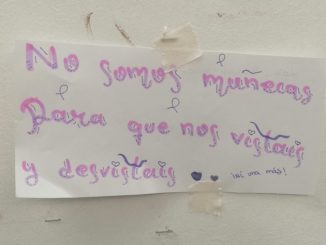 No somos muñecas
Para que nos vistais
y desvistais ¡ni una más!